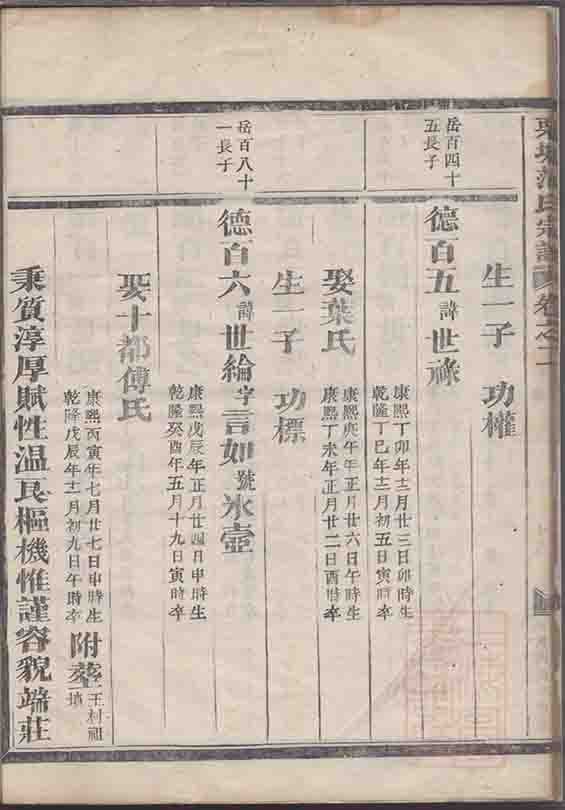 氏宗譜 卷之二
生一子 功權
岳百四十
五長子
德百五 諱世祿
康熙丁卯年十二月廿三日卯時生
乾隆丁巳年十二月初五日寅時卒
娶葉氏
康熙庚午年正月廿六日午時生
康熙丁未年正月廿二日酉時卒
生一子 功標
岳百八十
一長子
德百六 諱世綸字言如號氷壺
康熙戊辰年正月廿四日申時生
乾隆癸酉年五月十九日寅時卒
娶十都傅氏
康熙丙寅年七月廿七日申時生
乾隆戊辰年十一月初九日午時卒
附葬王村祖
墳
秉質淳厚賦性温良樞機惟謹容貌端莊